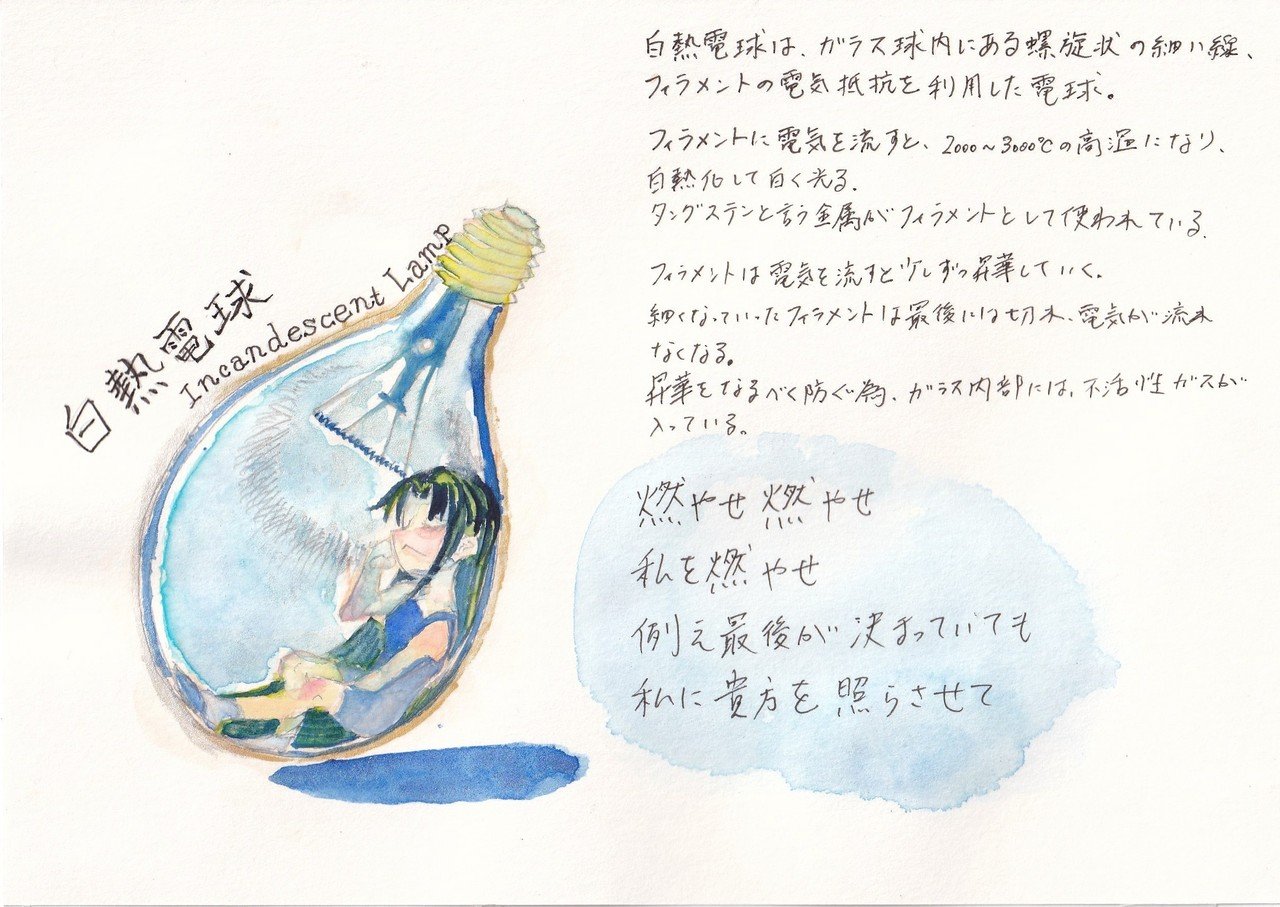 白熱電球
Incandescent Lamp
白熱電球は、ガラス球内にある螺旋状の細い線、
フィラメントの電気抵抗を利用した電球。
フィラメントに電気を流すと、2000~3000℃の高温になり、
白熱化して白く光る。
タングステンと言う金属がフィラメントとして使われている。
フィラメントは電気を流すと少しずつ昇華していく。
細くなっていったフィラメントは最後には切れ、電気が流れ
なくなる。
昇華をなるべく防ぐ為、ガラス内部には、不活性ガスが
入っている。
燃やせ 燃やせ
私を燃やせ
例え最後が決まっていても
私に貴方を照らさせて